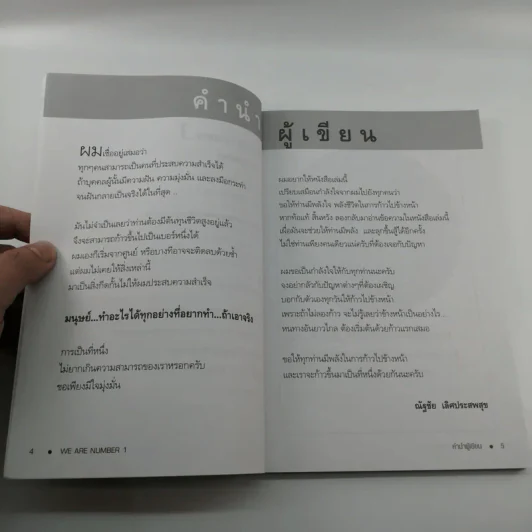 คำนำ
ผมเชื่ออยู่เสมอว่า
ทุกๆคนสามารถเป็นคนที่ประสบความสำเร็จได้
ถ้าบุคคลผู้นั้นมีความฝัน ความมุ่งมั่น และลงมือกระทำ
จนฝันกลายเป็นจริงได้ในที่สุด...
มันไม่จำเป็นเลยว่าท่านต้องมีต้นทุนชีวิตสูงอยู่แล้ว
จึงจะสามารถก้าวขึ้นไปเป็นเบอร์หนึ่งได้
ผมเองก็เริ่มจากศูนย์ หรือบางทีอาจจะติดลบด้วยซ้ำ
แต่ผมไม่เคยให้สิ่งเหล่านี้
มาเป็นสิ่งกีดกั้นไม่ให้ผมประสบความสำเร็จ
มนุษย์...ทำอะไรได้ทุกอย่างที่อยากทำ...ถ้าเอาจริง
การเป็นที่หนึ่ง
ไม่ยากเกินความสามารถของเราหรอกครับ
ขอเพียงมีใจมุ่งมั่น
4 • WE ARE NUMBER 1
ผู้เขียน
ผมอยากให้หนังสือเล่มนี้
เปรียบเสมือนกำลังใจจากผมไปยังทุกคนว่า
ขอให้ท่านมีพลังใจ พลังชีวิตในการก้าวไปข้างหน้า
หากท้อแท้ สิ้นหวัง ลองกลับมาอ่านข้อความในหนังสือเล่มนี้
เผื่อมันจะช่วยให้ท่านมีพลัง และลุกขึ้นสู้ได้อีกครั้ง
ไม่ใช่ท่านเพียงคนเดียวแน่ครับที่ต้องเจอกับปัญหา
ผมขอเป็นกำลังใจให้กับทุกท่านนะครับ
จงอย่ากลัวกับปัญหาต่างๆที่ต้องเผชิญ
บอกกับตัวเองทุกวันให้ก้าวไปข้างหน้า
เพราะถ้าไม่ลองก้าว จะไม่รู้เลยว่าข้างหน้าเป็นอย่างไร...
หนทางอันยาวไกล ต้องเริ่มต้นด้วยก้าวแรกเสมอ
ขอให้ทุกท่านมีพลังในการก้าวไปข้างหน้า
และเราจะก้าวขึ้นมาเป็นที่หนึ่งด้วยกันนะครับ
ณัฐชัย เลิศประสพสุข
คำนำผู้เขียน • 5